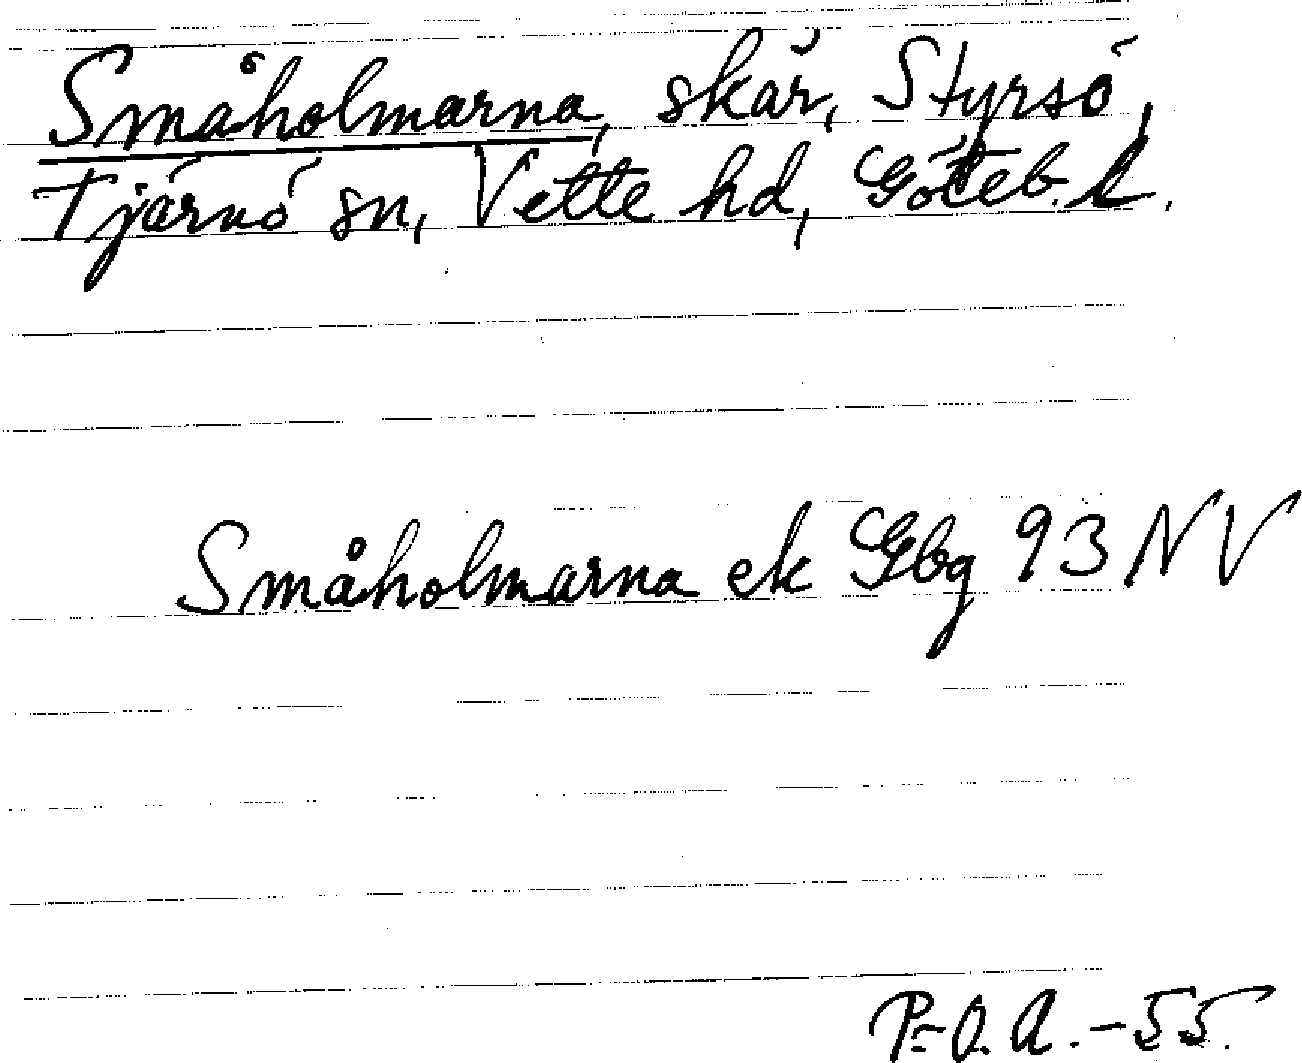 Småholmarna, skär, Styrsö,
Tjärnö sn, Vette hd, Göteb. l.
Småholmarna ek Gbg 93 NV
P-O. A. -55.